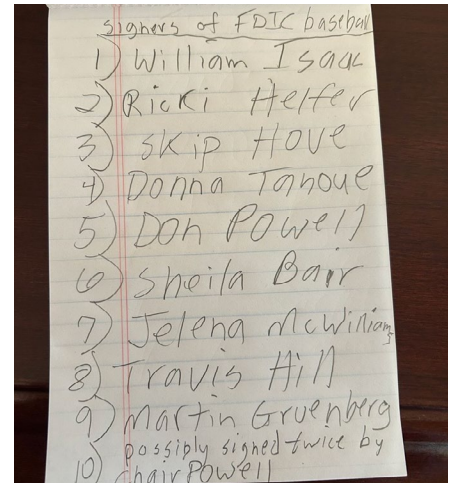 signers of FDIC baseball
1) William Isaac
2) Ricki Helfer
3) Skip Hove
4) Donna Tanoue
5) Don Powell
6) Sheila Bair
7) Jelena McWilliams
8) Travis Hill
9) Martin Gruenberg
10) possibly signed twice by
chair Powell